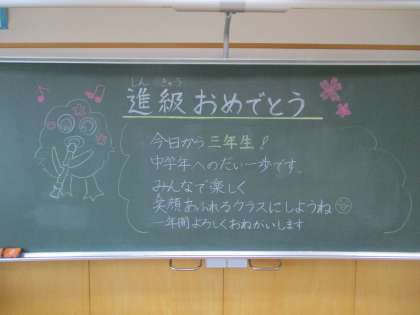 しん きゅう
進級おめでとう
今日から三年生!
中学年へのだい一歩です。
みんなで楽しく
笑顔あふれるクラスにしようね
一年間よろしくおねがいします